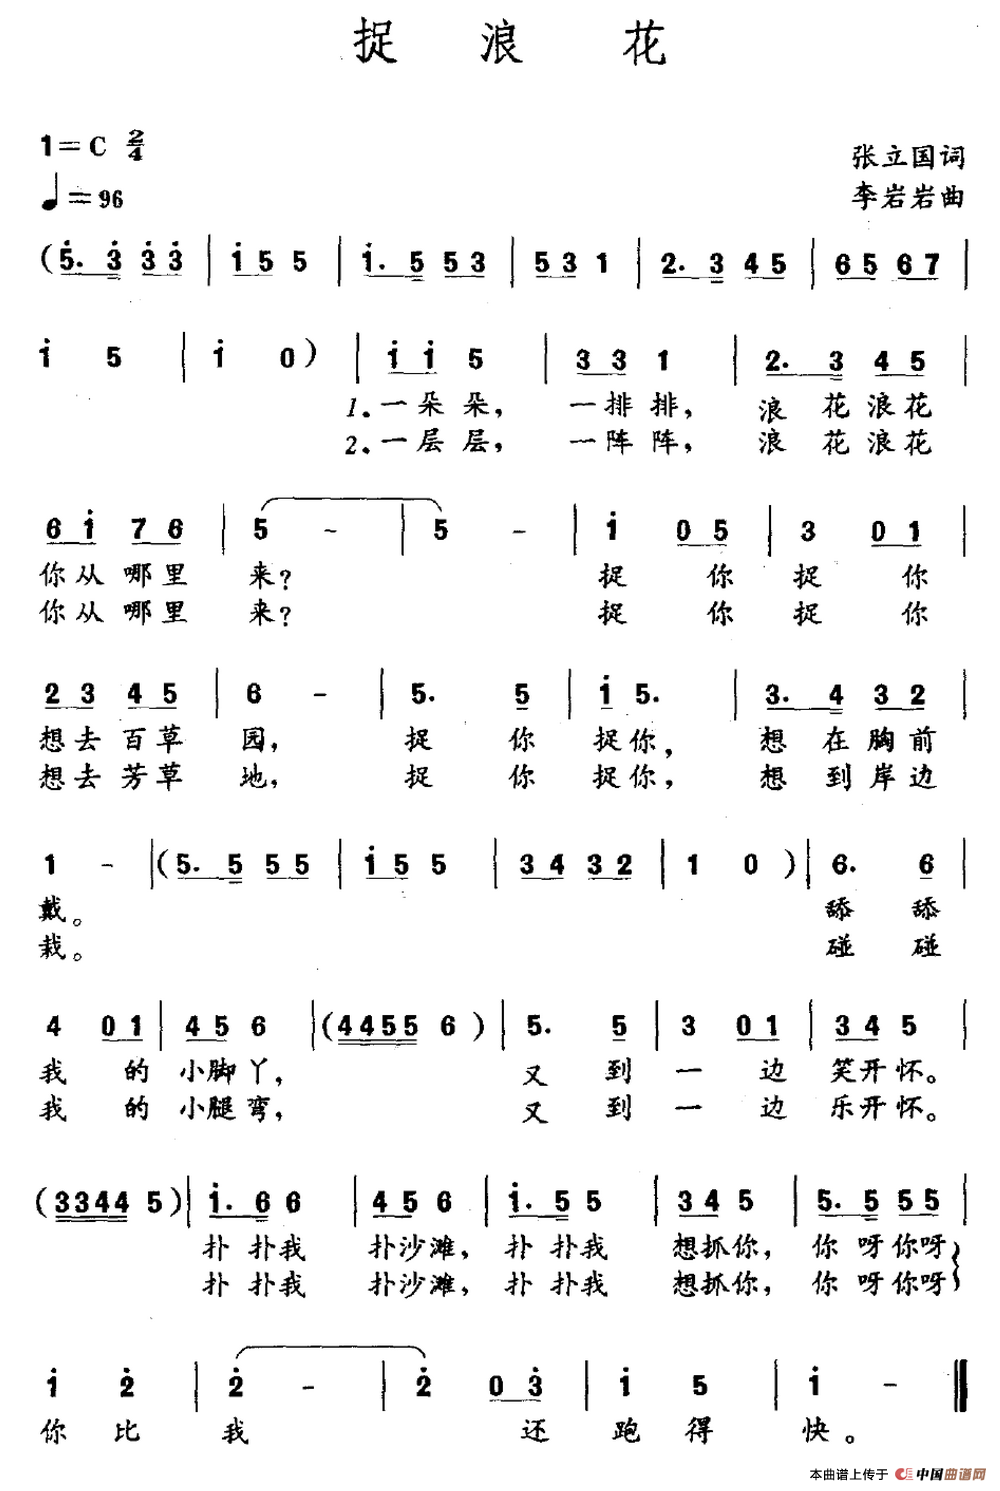 捉 浪 花
1=C 2/4
张立国词
♩=96
李岩岩曲
(5. 3 3 3 | i 5 5 | i. 5 5 3 | 5 3 1 | 2. 3 4 5 | 6 5 6 7 |
i 5 | i 0) | i i 5 | 3 3 1 | 2. 3 4 5 |
1.一朵朵, 一排排, 浪花浪花
2.一层层, 一阵阵, 浪花浪花
6 i 7 6 | 5 - | 5 - | i 0 5 | 3 0 1 |
你从哪里 来? 捉 你 捉 你
你从哪里 来? 捉 你 捉 你
2 3 4 5 | 6 - | 5. 5 | i 5. | 3. 4 3 2 |
想去百草 园, 捉 你 捉你, 想在胸前
想去芳草 地, 捉 你 捉你, 想到岸边
1 - | (5. 5 5 5 | i 5 5 | 3 4 3 2 | 1 0) | 6. 6 |
戴。 舔 舔
栽。 碰 碰
4 0 1 | 4 5 6 | (4455 6) | 5. 5 | 3 0 1 | 3 4 5 |
我 的 小脚丫, 又 到 一 边 笑开怀。
我 的 小腿弯, 又 到 一 边 乐开怀。
(3344 5) | i. 6 6 | 4 5 6 | i. 5 5 | 3 4 5 | 5. 5 5 5 |
扑 扑我 扑沙滩, 扑 扑我 想抓你, 你 呀你呀
扑 扑我 扑沙滩, 扑 扑我 想抓你, 你 呀你呀
i 2 | 2 - | 2 0 3 | i 5 | i - ‖
你 比 我 还 跑 得 快。
本曲谱上传于 中国曲谱网